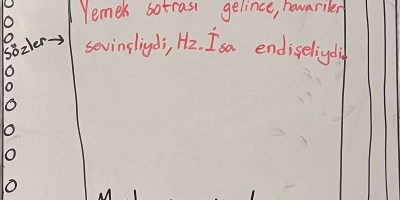 Yemek sofrası gelince, havariler
sözler→ sevinçliydi, Hz. İsa endişeliydi.